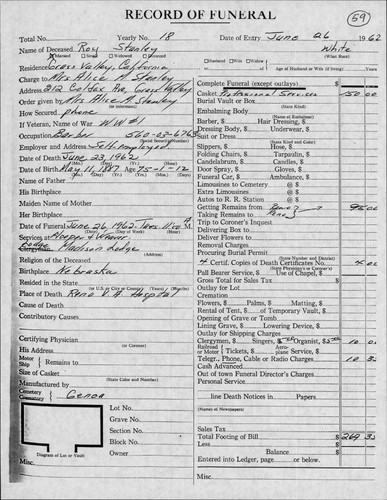 RECORD OF FUNERAL
59
Total No. Yearly No. 18 Date of Entry June 26 1962
Name of Deceased Roy Stanley White
Married Single Widowed Divorced Husband Wife Widow of (What Race)
Residence Grass Valley, California Age of Husband or Wife (if living) Years
Charge to Mrs Alice M. Stanley
Address 212 Colfax Ave, Grass Valley
Order given by Mrs Alice M. Stanley
How Secured phone
If Veteran, Name of War WW #1
Occupation Barber 560-03-6763
Employer and Address Self employed
Date of Death June 23, 1962
(Mo.) (Day) (Yr.) (Hour)
Date of Birth May 11, 1887 Age 75-1-12
Name of Father
His Birthplace
Maiden Name of Mother
Her Birthplace
Date of Funeral June 26, 1962 Tues 11:00 A M.
Services at
Lodge Madison Lodge
Religion of the Deceased
Birthplace Nebraska
Resided in the State
(or U.S. or City or County) (Years) (Months)
Place of Death Reno V.A. Hospital
Cause of Death
Contributory Causes
Certifying Physician
His Address
Motor
Ship Remains to
Size of Casket
(State Color and Number)
Manufactured by
Cemetery
Crematory Genoa
Lot No.
Grave No.
Section No.
Block No.
Owner
Diagram of Lot or Vault
Misc.
Complete Funeral (except outlays) $
Casket Professional Services 150 00
Burial Vault or Box
(State Kind)
Embalming Body
Barber, $ Hair Dressing, $
Dressing Body, $ Underwear, $
Suit or Dress
(State Kind and Color)
Slippers, $ Hose, $
Folding Chairs, $ Tarpaulin, $
Candelabrum, $ Candles, $
Door Spray, $ Gloves, $
Funeral Car, $ Ambulance, $
Limousines to Cemetery @ $
Extra Limousines @ $
Autos to R. R. Station @ $
Getting Remains from Reno
Taking Remains to Reno 95 00
Trip to Coroner's Inquest
Delivering Box to
Deliver Flowers to
Removal Charges
Procuring Burial Permit
(State Number and District)
4 Certif. Copies of Death Certificates No. 4 00
(State Physician's or Coroner's)
Pall Bearer Service, $ Use of Chapel, $
Gross Total for Sales Tax $
Outlay for Lot
Cremation
Flowers, $ Palms, $ Matting, $
Rental of Tent, $ of Temporary Vault, $
Opening of Grave or Tomb
Lining Grave, $ Lowering Device, $
Outlay for Shipping Charges
Clergymen, $ Singers, $ Organist, $
Railroad / or Motor Tickets, $ Aeroplane Service, $
Telegr., Phone, Cable or Radio Charges
Cash Advanced
Out of town Funeral Director's Charges
Personal Service
line Death Notices in Papers
(Names of Newspapers)
Sales Tax
Total Footing of Bill $
Less
Balance $
Entered into Ledger, page or below.
Misc.